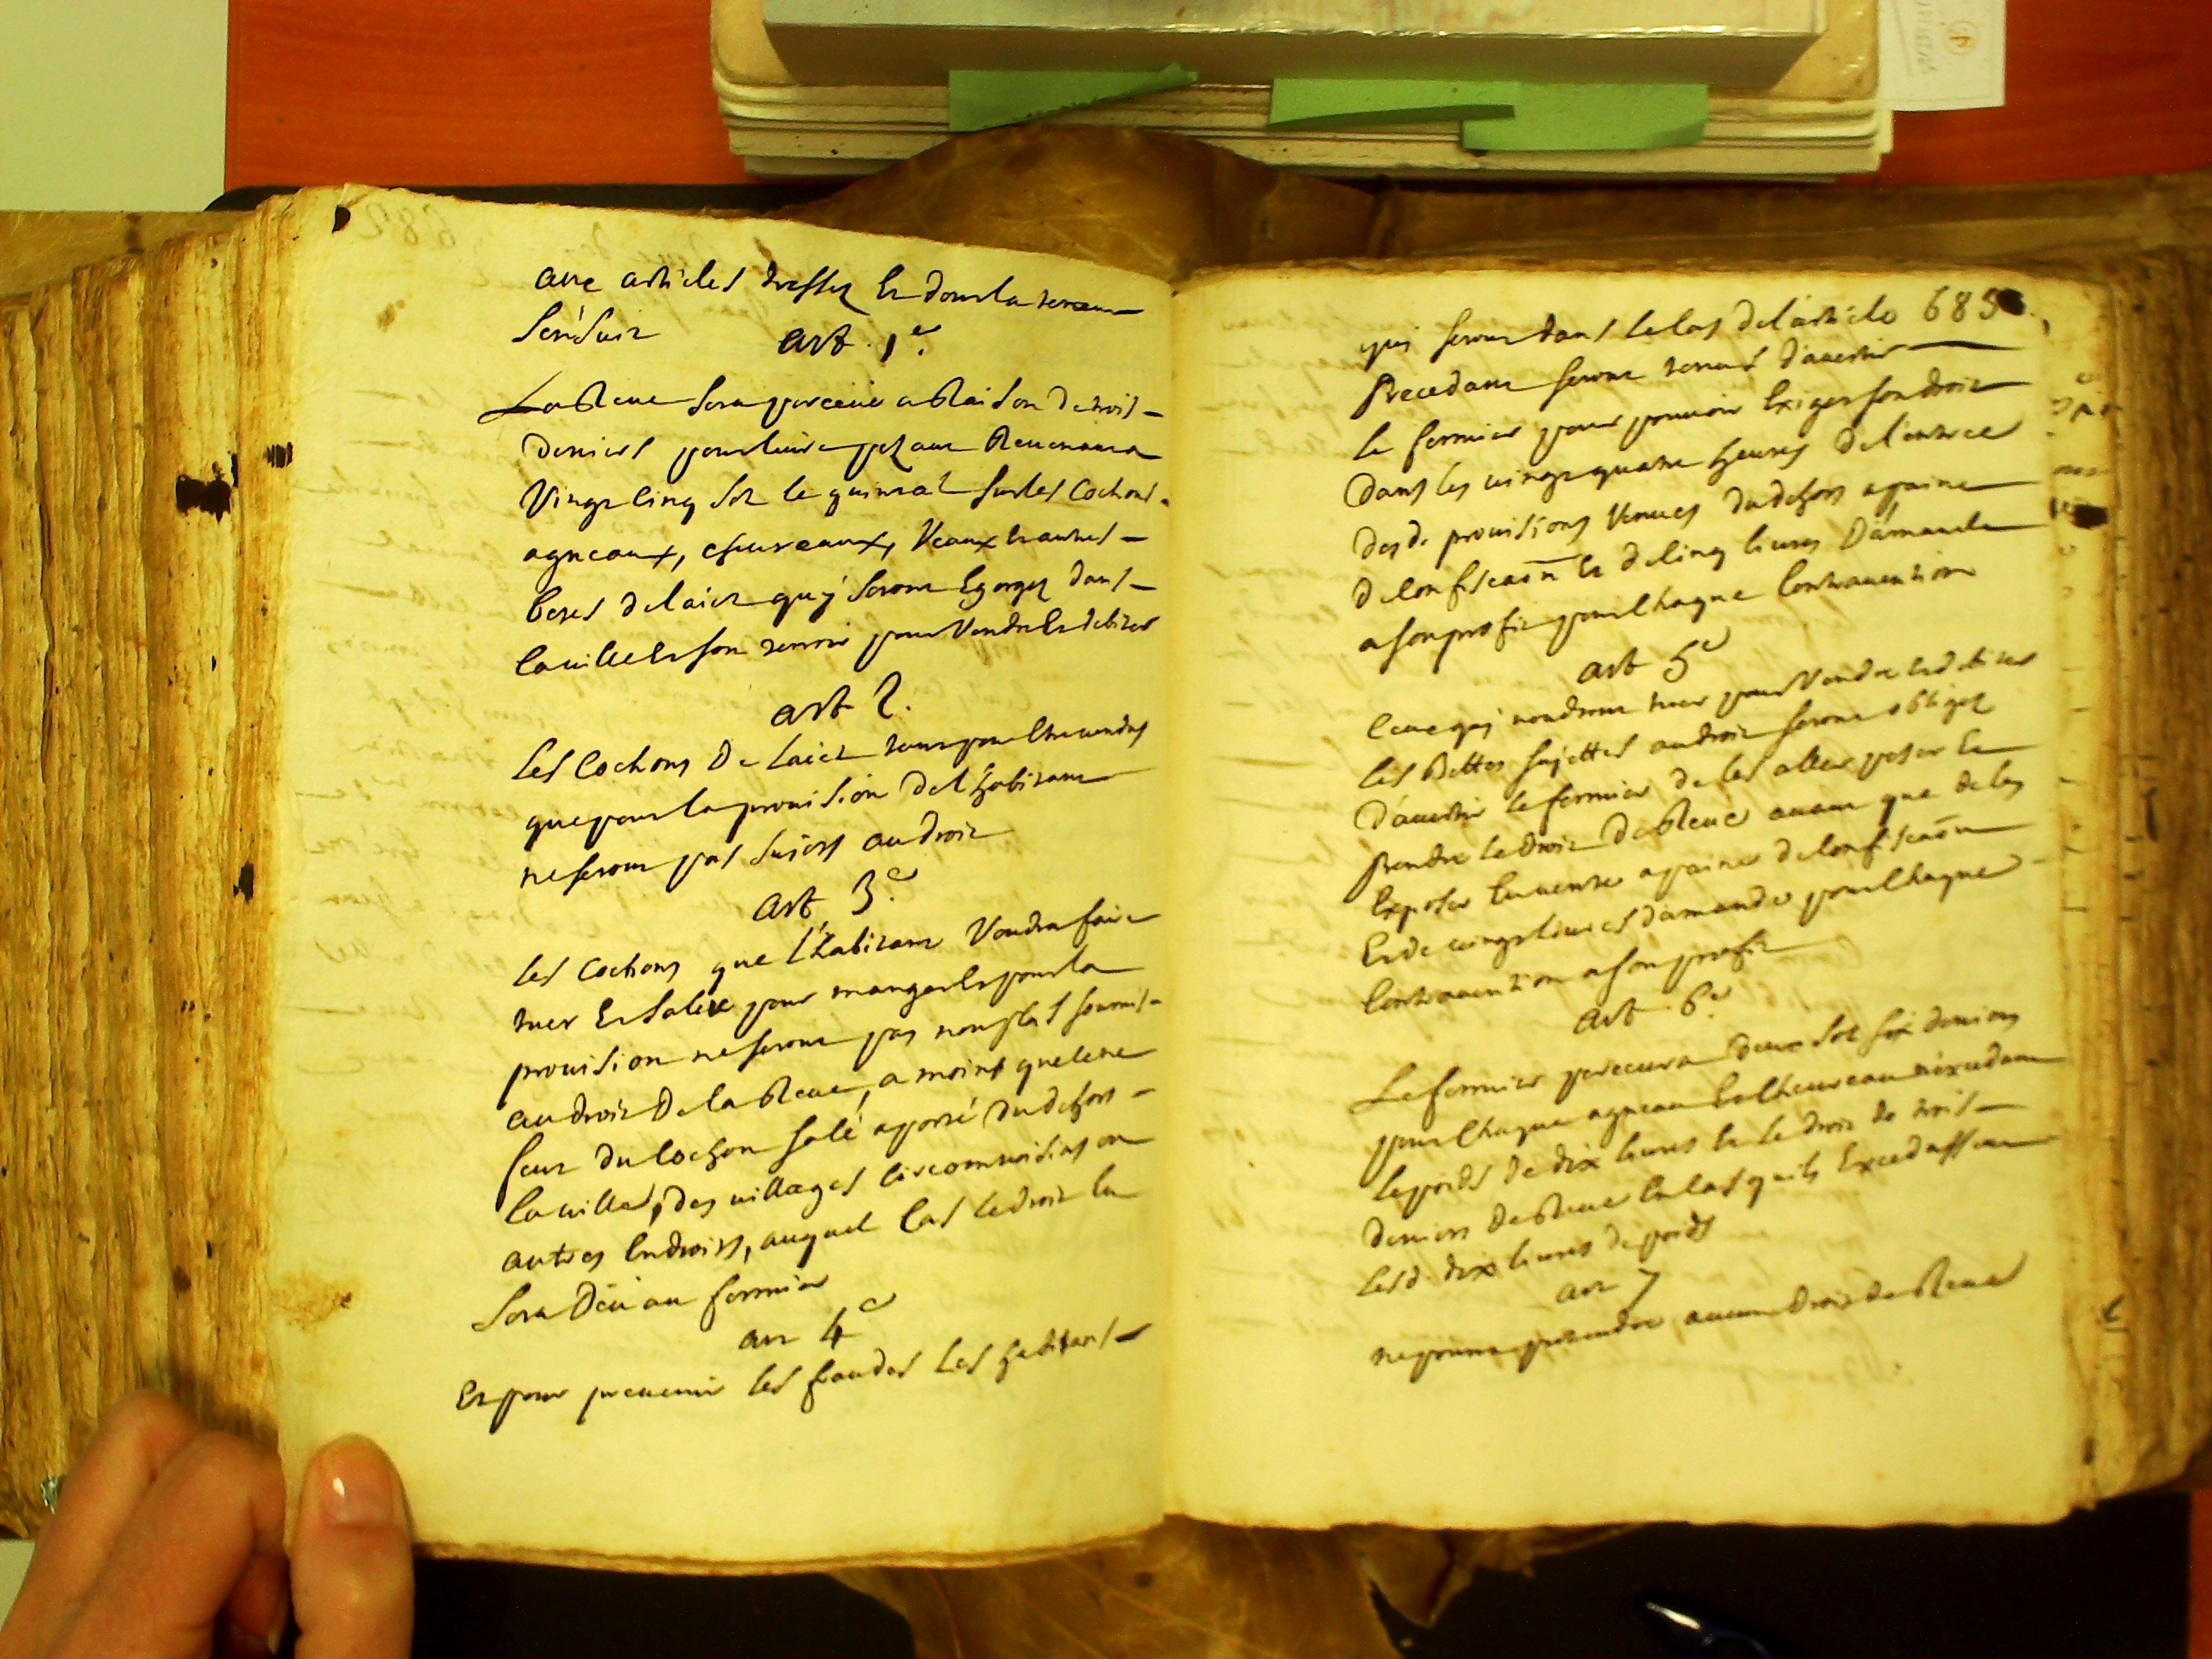 aux articles dressez et dont la teneur
sen suit
art. 1er.
La Reue sera perceüe a Raison de trois
deniers pour liure pezant Reuenant a
Vingt cinq sol le quintal sur les Cochons
agneaux, cheureaux, Veaux et autres
betes de laict quy seront Egorgez dans
la ville et son terroir pour Vendre et debiter
art 2.
Les Cochons de Laict tant pour etre vendus
que pour la prouision del habitant
ne seront pas sujets au droit
art 3e.
les Cochons que l'habitant Voudra faire
tuer Et Saler pour manger et pour la
prouision ne seront pas non plus soumis
au droit de la Reue, a moins que ce ne
feut du Cochon salé aporté du dehors
la ville, des villages circomvoisins ou
autres Endroits, auquel cas le droit en
Sera Deü au fermier
art 4e
Et pour preuenir les fraudes Les habitans
685
qui seront dans le cas del article
Precedant seront tenus d'auertir
le fermier pour pouuoir Exiger son droit
dans les vingt quatre heures de l'entree
des d. prouisions Venues du dehors a paine
de confiscaon et de cinq liures D'amande
a son profit pour Chaque Contrauention
art 5e
Ceux quy voudront tuer pour Vendre et debiter
les Bettes sujettes au droit seront obligez
D'auertir le fermier de les aller peser Et
Prendre le droit de Reue auant que de les
Exposer En vente a paine de confiscaon
Et de vingt liures d'amande pour Chaque
Contrauention a son profit
art 6e.
Le fermier perceura deux sol six deniers
pour Chaque agneau et Cheureau n'exedant
le poids de dix liures et le droit de trois
deniers de Reue en cas qu'ils Excedassent
les d. dix liures de poids
art 7
ne pourra pretendre aucun droit de Reue